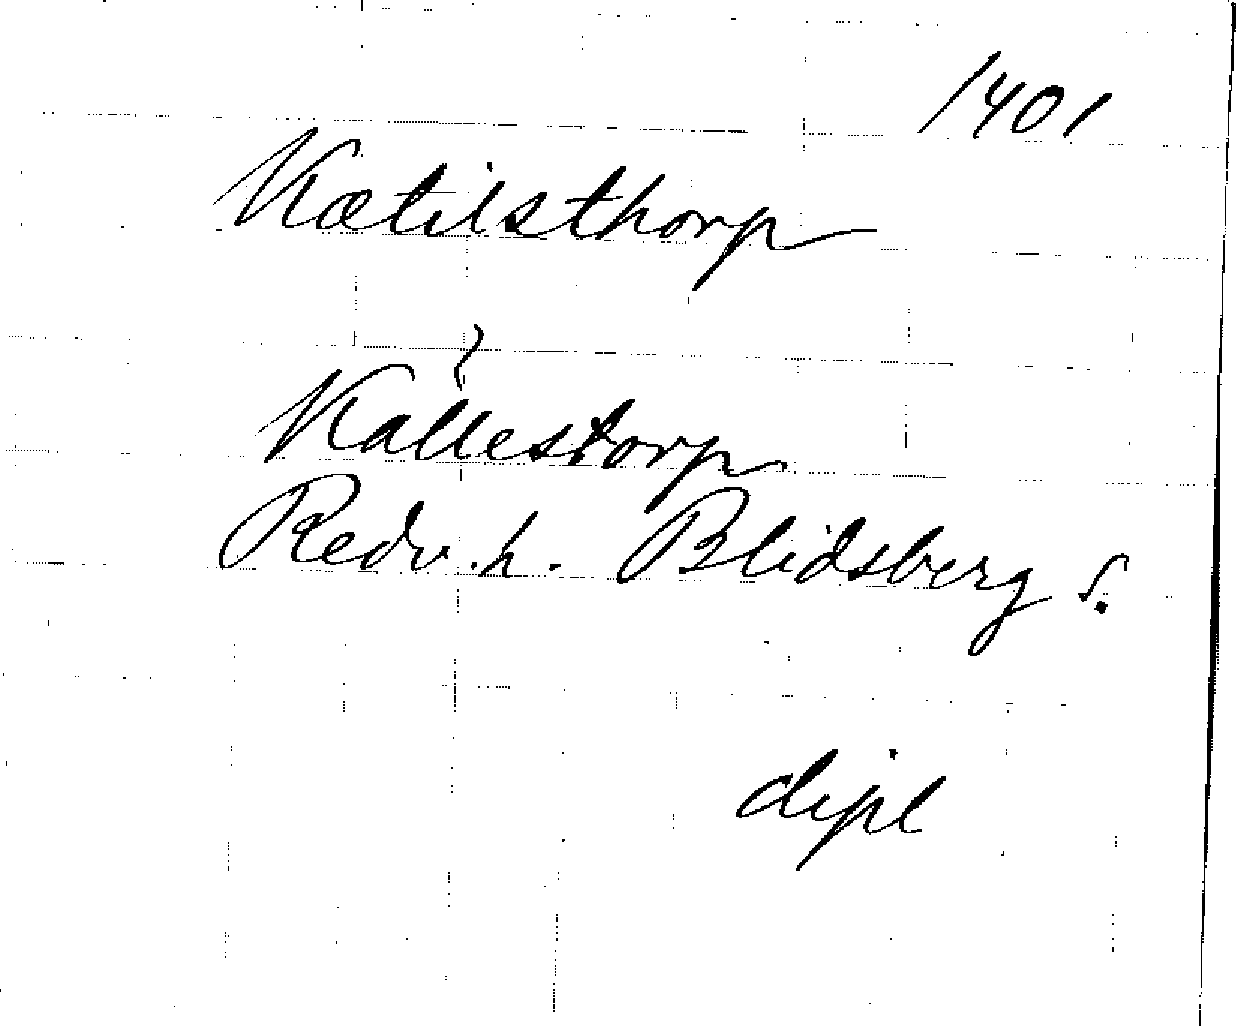 1401
Kætilsthorp
?
Kallestorp
Redv. h. Blidsberg s.
dipl